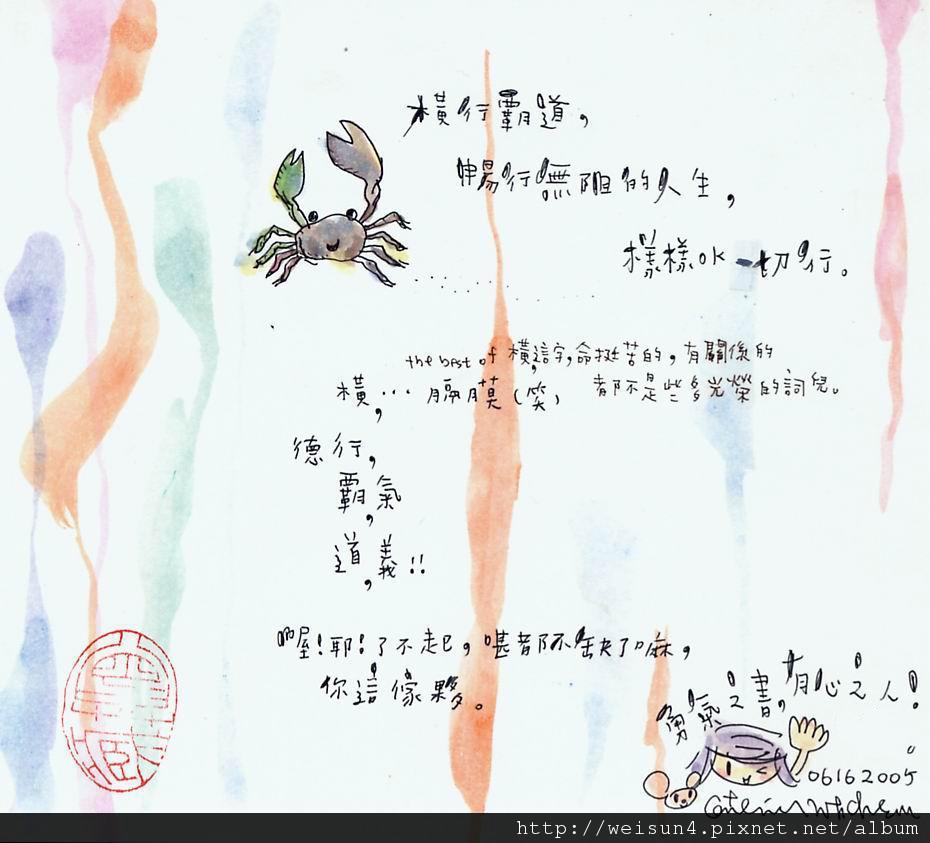 橫行霸道,
暢行無阻的人生,
樣樣OK一切行。
the best of 橫這字,命挺苦的,有關係的
橫,… 膈膜(笑) 都不是些多光榮的詞兒。
德行,
霸氣,
道義,!!
喔!耶!了不起,甚都不缺了嘛,
你這傢夥。
勇氣之書,有心之人!
06162005
http://weisun4.pixnet.net/album